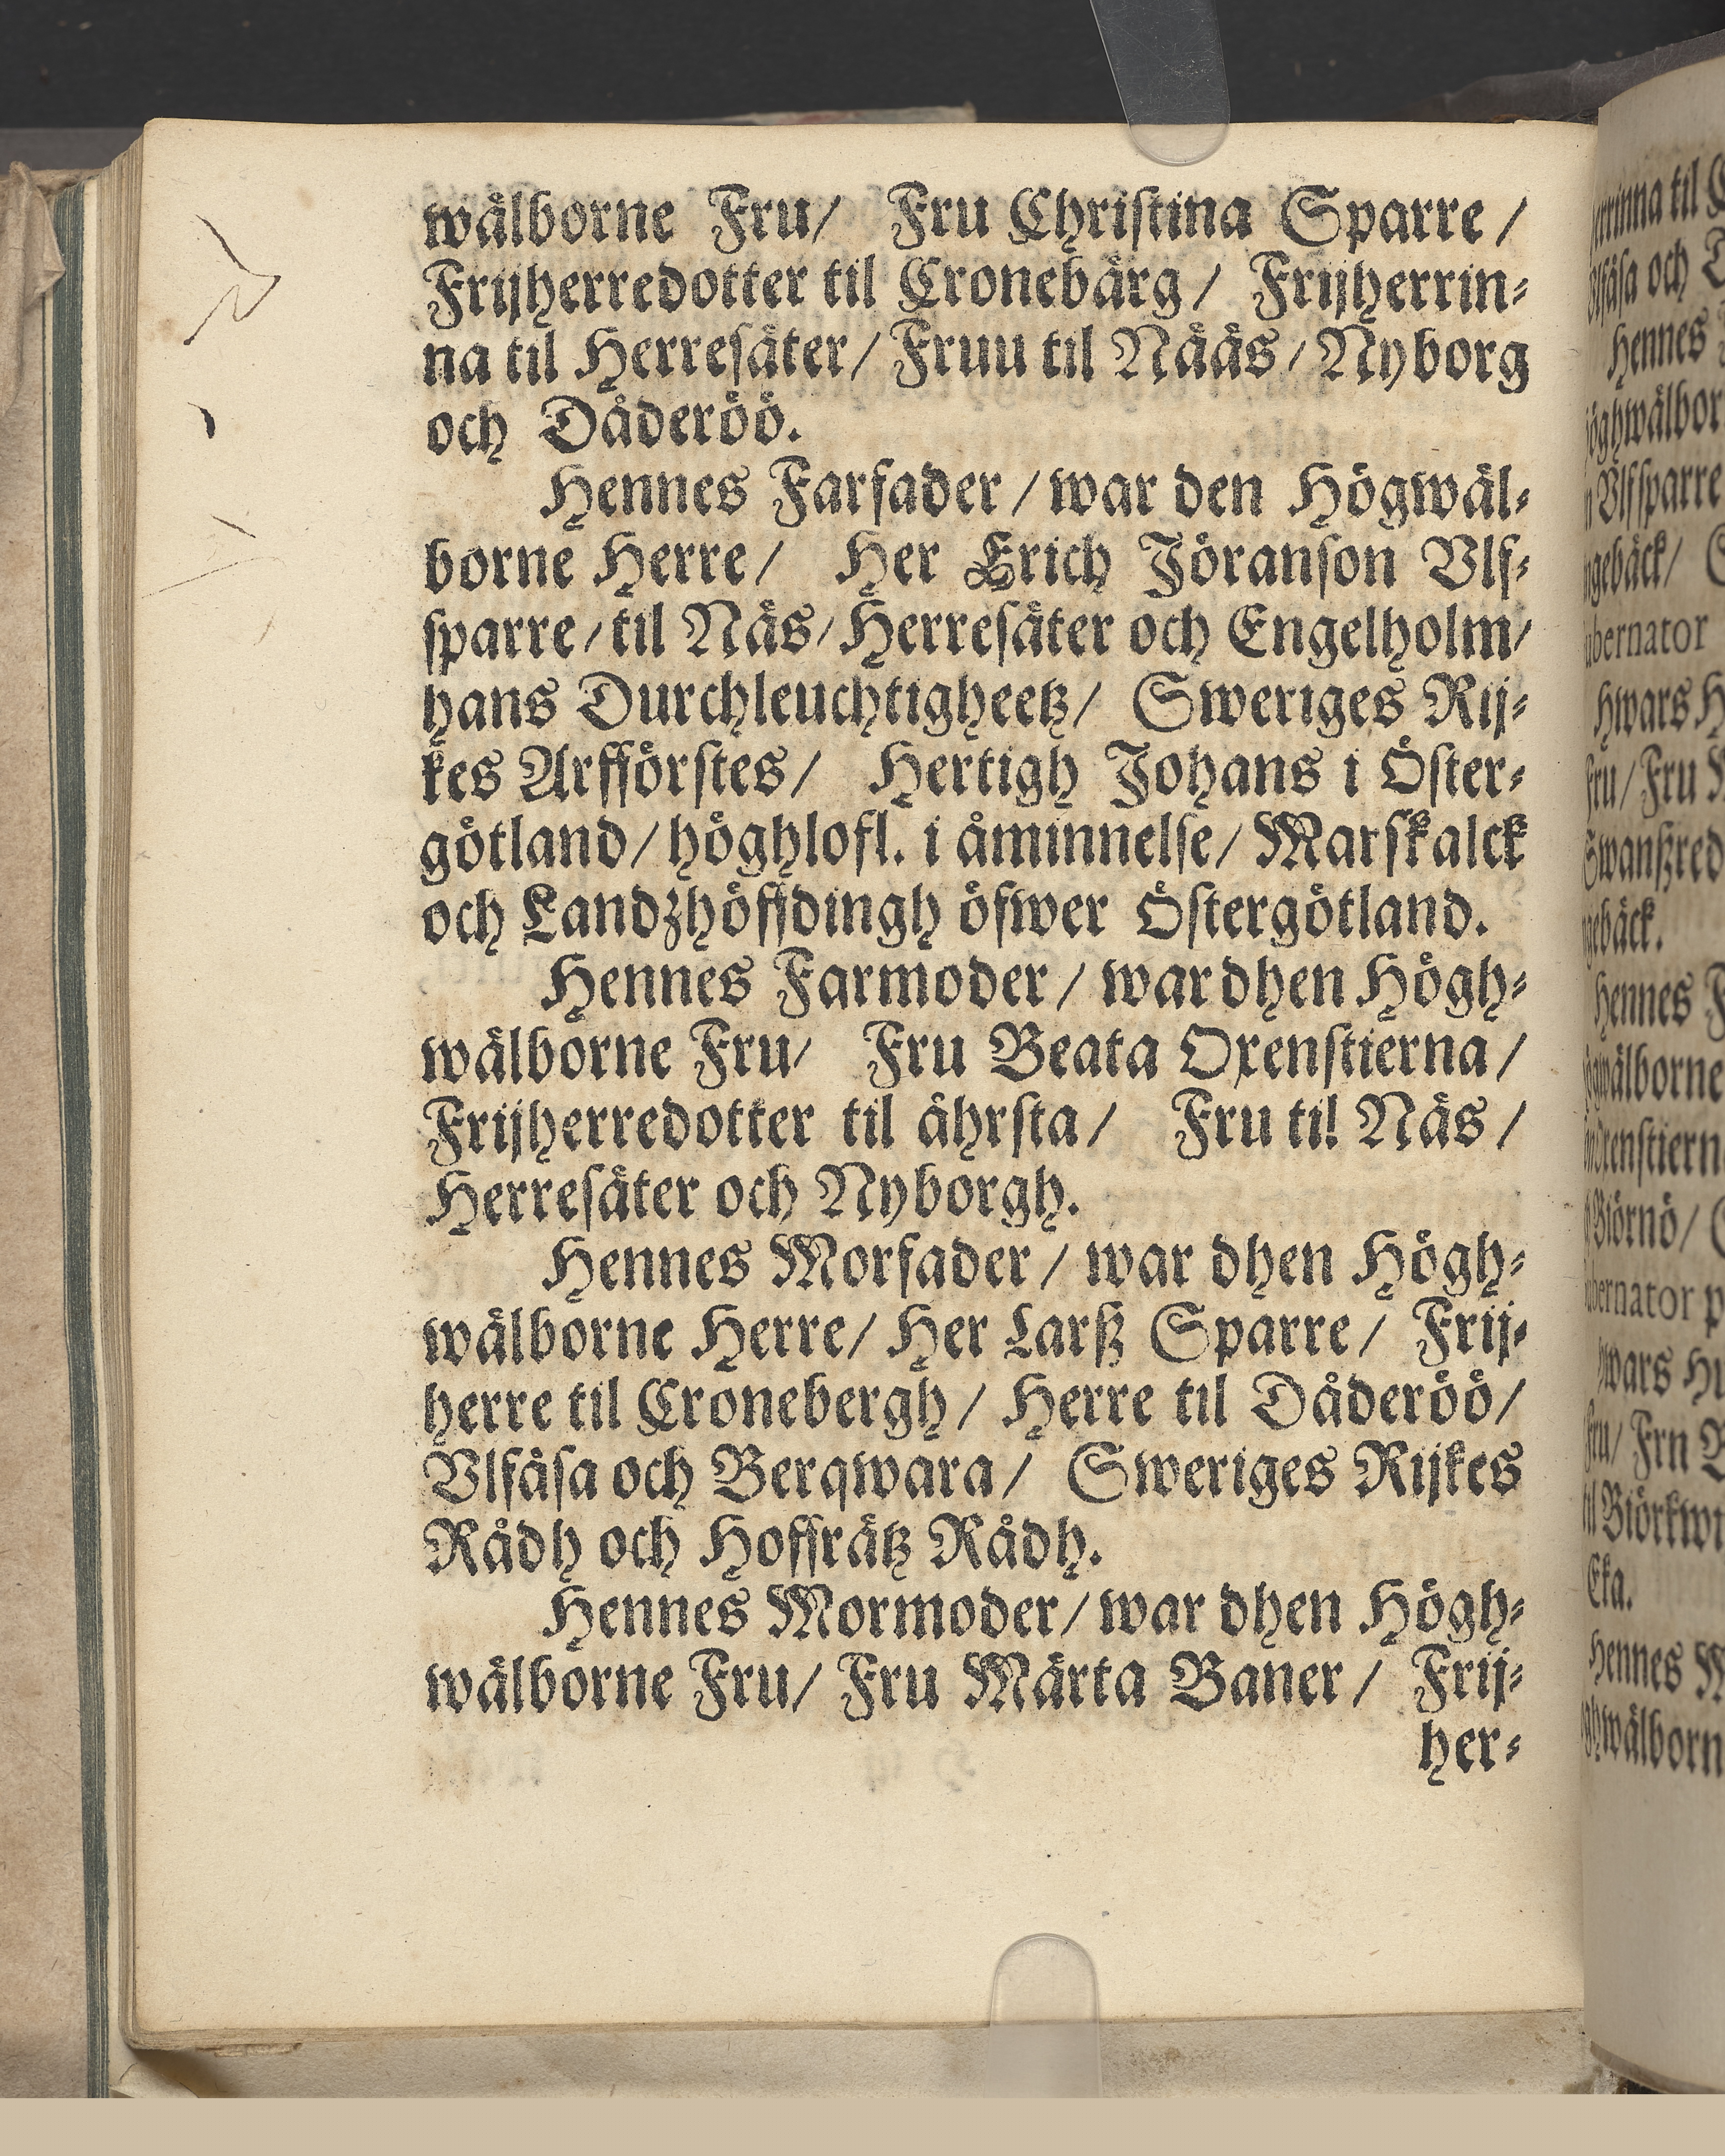 wälborne Fru/ Fru Chriſtina Sparre /
Frijherredotter til Cronebärg / Frijherrin⸗
na til Herreſäter/ Fruu til Nääs / Nyborg
och Dåderöö.
Hennes Farfader / war den Högwäl⸗
borne Herre / Her Erich Jöranſon Vlf⸗
ſparre / til Näs / Herreſäter och Engelholm/
hans Durchleuchtigheetz/ Sweriges Rij⸗
kes Arfförſtes / Hertigh Johans i Öſter⸗
götland / höghlofl. i åminnelſe / Marſkalck
och Landzhöffdingh öfwer Öſtergötland.
Hennes Farmoder / war dhen Högh⸗
wälborne Fru/ Fru Beata Oxenſtierna /
Frijherredotter til ährſta / Fru til Näs /
Herreſäter och Nyborgh.
Hennes Morfader / war dhen Högh⸗
wälborne Herre/ Her Larß Sparre / Frij⸗
herre til Cronebergh / Herre til Dåderöö/
Vlfäſa och Berqwara / Sweriges Rijkes
Rådh och Hoffrätz Rådh.
Hennes Mormoder / war dhen Högh⸗
wälborne Fru/ Fru Märta Baner / Frij⸗
her⸗